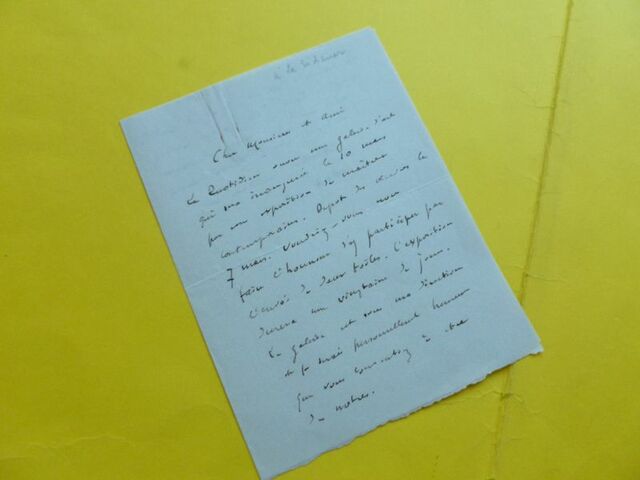 Cher Monsieur et ami
Le Quotidien ouvre une galerie d'art
qui sera inaugurée le 10 mars
par une exposition de maîtres
contemporains. Dépot des œuvres le
7 mars. Voudriez-vous nous
faire l'honneur d'y participer par
l'envoi de deux toiles. L'exposition
durera une vingtaine de jours.
La galerie est sous ma direction
et je serai personnellement heureux
que vous consentiez à être
des nôtres.